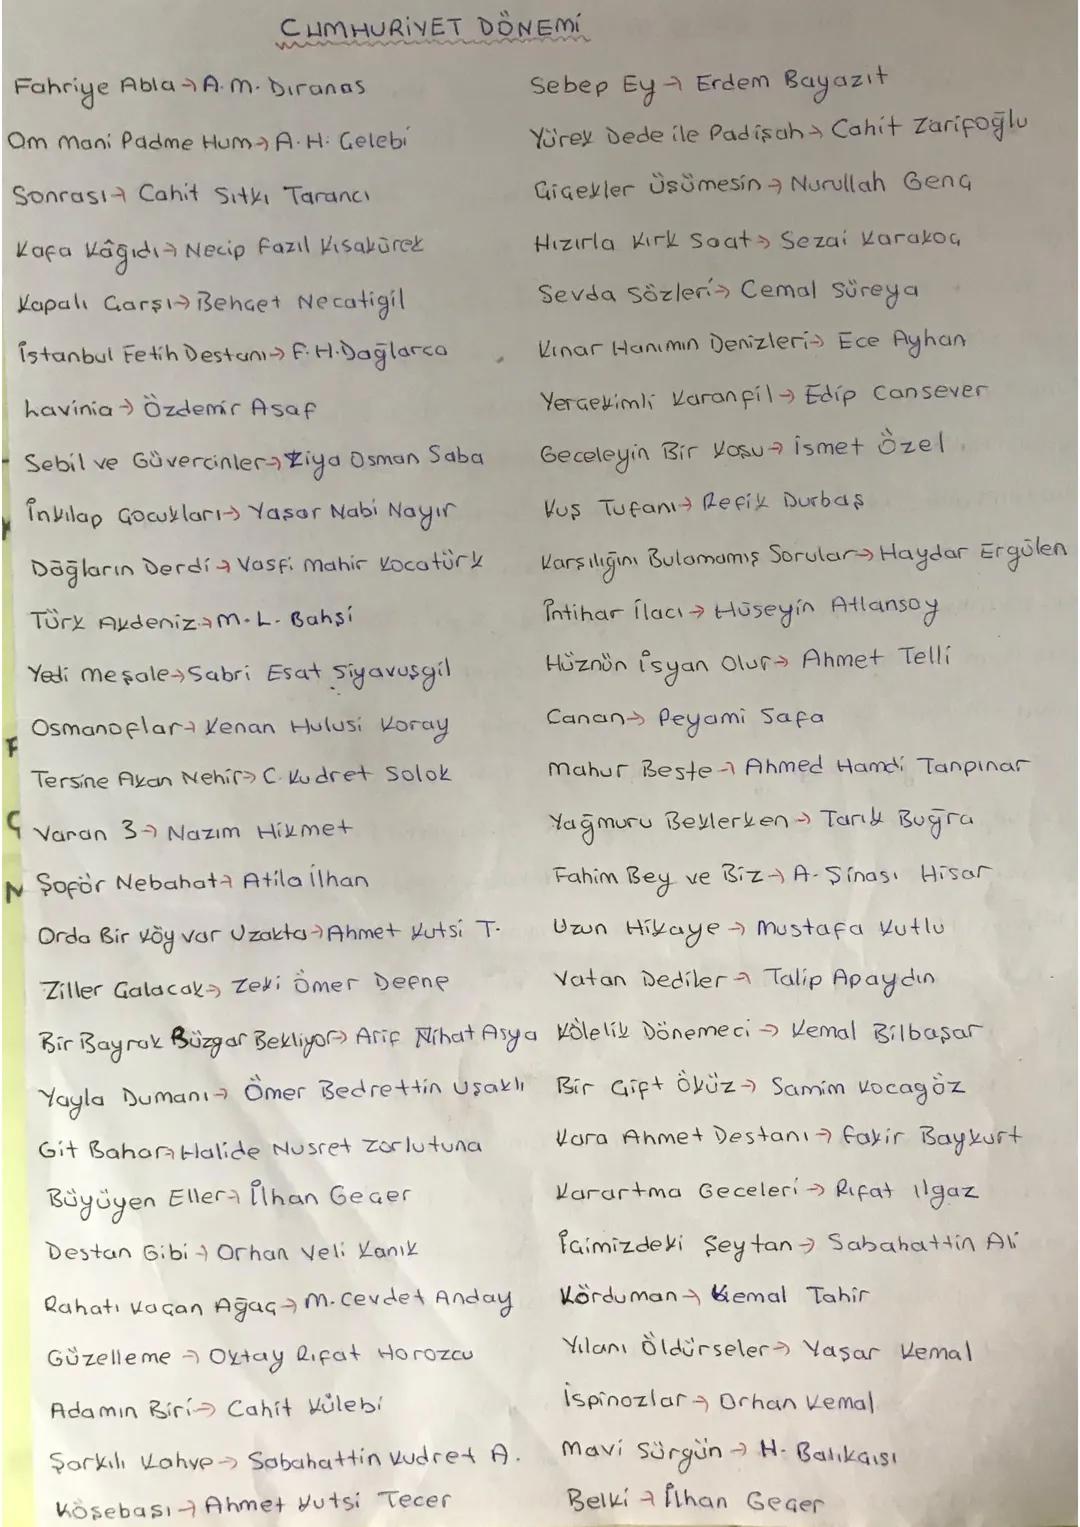 CUMHURİYET DÖNEMİ
Fahriye Abla → A. M. Dıranas
Om Mani Padme Hum → A. H. Çelebi
Sonrası → Cahit Sıtkı Tarancı
Kafa Kâğıdı → Necip Fazıl Kısakürek
Kapalı Çarşı → Behçet Necatigil
İstanbul Fetih Destanı → F. H. Dağlarca
Lavinia → Özdemir Asaf
Sebil ve Güvercinler → Ziya Osman Saba
İnkılap Çocukları → Yaşar Nabi Nayır
Dağların Derdi → Vasfi Mahir Kocatürk
Türk Akdeniz → M. L. Bahşi
Yedi Meşale → Sabri Esat Siyavuşgil
Osmanoflar → Kenan Hulusi Koray
Tersine Akan Nehir → C. Kudret Solok
Varan 3 → Nazım Hikmet
Şoför Nebahat → Atila İlhan
Orda Bir Köy var Uzakta → Ahmet Kutsi T.
Ziller Çalacak → Zeki Ömer Defne
Bir Bayrak Rüzgar Bekliyor → Arif Nihat Asya
Yayla Dumanı → Ömer Bedrettin Uşaklı
Git Bahar → Halide Nusret Zorlutuna
Büyüyen Eller → İlhan Geçer
Destan Gibi → Orhan Veli Kanık
Rahatı Kaçan Ağaç → M. Cevdet Anday
Güzelleme → Oktay Rıfat Horozcu
Adamın Biri → Cahit Külebi
Şarkılı Kahve → Sabahattin Kudret A.
Köşebaşı → Ahmet Kutsi Tecer
Sebep Ey → Erdem Bayazıt
Yürek Dede ile Padişah → Cahit Zarifoğlu
Çiçekler Üşümesin → Nurullah Genç
Hızırla Kırk Saat → Sezai Karakoç
Sevda Sözleri → Cemal Süreya
Kınar Hanımın Denizleri → Ece Ayhan
Yerçekimli Karanfil → Edip Cansever
Geceleyin Bir Koşu → İsmet Özel
Kuş Tufanı → Refik Durbaş
Karşılığını Bulamamış Sorular → Haydar Ergülen
İntihar İlacı → Hüseyin Atlansoy
Hüznün İsyan Olur → Ahmet Telli
Canan → Peyami Safa
Mahur Beste → Ahmed Hamdi Tanpınar
Yağmuru Beklerken → Tarık Buğra
Fahim Bey ve Biz → A. Şinası Hisar
Uzun Hikaye → Mustafa Kutlu
Vatan Dediler → Talip Apaydın
Kölelik Dönemeci → Kemal Bilbaşar
Bir Çift Öküz → Samim Kocagöz
Kara Ahmet Destanı → Fakir Baykurt
Karartma Geceleri → Rıfat Ilgaz
İçimizdeki Şeytan → Sabahattin Ali
Körduman → Kemal Tahir
Yılanı Öldürseler → Yaşar Kemal
İspinozlar → Orhan Kemal
Mavi Sürgün → H. Balıkçısı
Belki → İlhan Geçer